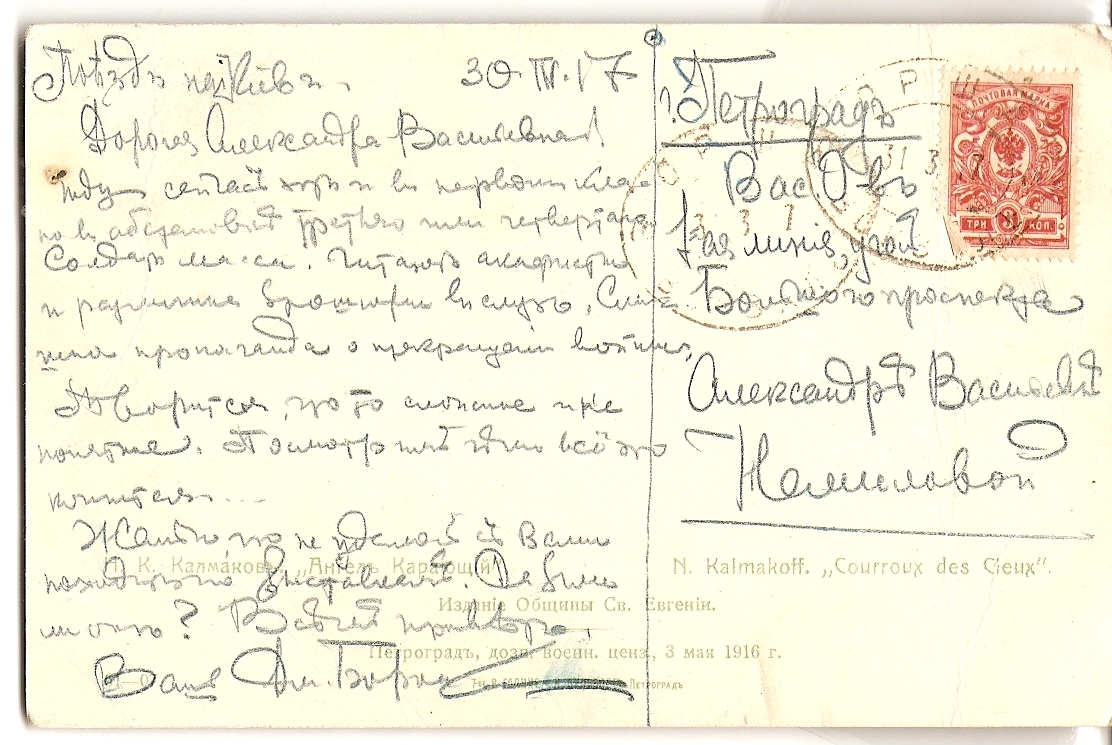 Поѣздъ на Кіевъ. 30 III. 17
Дорогая Александра Васильевна!
Иду сейчасъ въ первомъ клас
но въ обстановкѣ третьяго или четвертаго
Солдатъ масса. Читаютъ акафисты
и различныя брошюры вслухъ. Силь
пропаганда о прекращеніи войны,
Говорится, что то сложное и не
понятное. Посмотримъ чѣмъ всё это
кончится...
Жалко, что не удалось съ Вами
походить по выставкѣ. Да
ли онъ? Всѣмъ привѣтъ.
Вашъ Дм. Бор
г. Петроградъ
Вас. О-въ
1-ая линія, уголъ
Большого проспекта
Александрѣ Васильевнѣ
Немиловой
ПОЧТОВАЯ МАРКА
ТРИ 3 КОП.
31 3
Н. К. Калмаковъ. „Ангелъ Карающій".
N. Kalmakoff. „Courroux des Cieux".
Изданіе Общины Св. Евгеніи.
Петроградъ, дозв. военн. ценз., 3 мая 1916 г.
Петроградъ